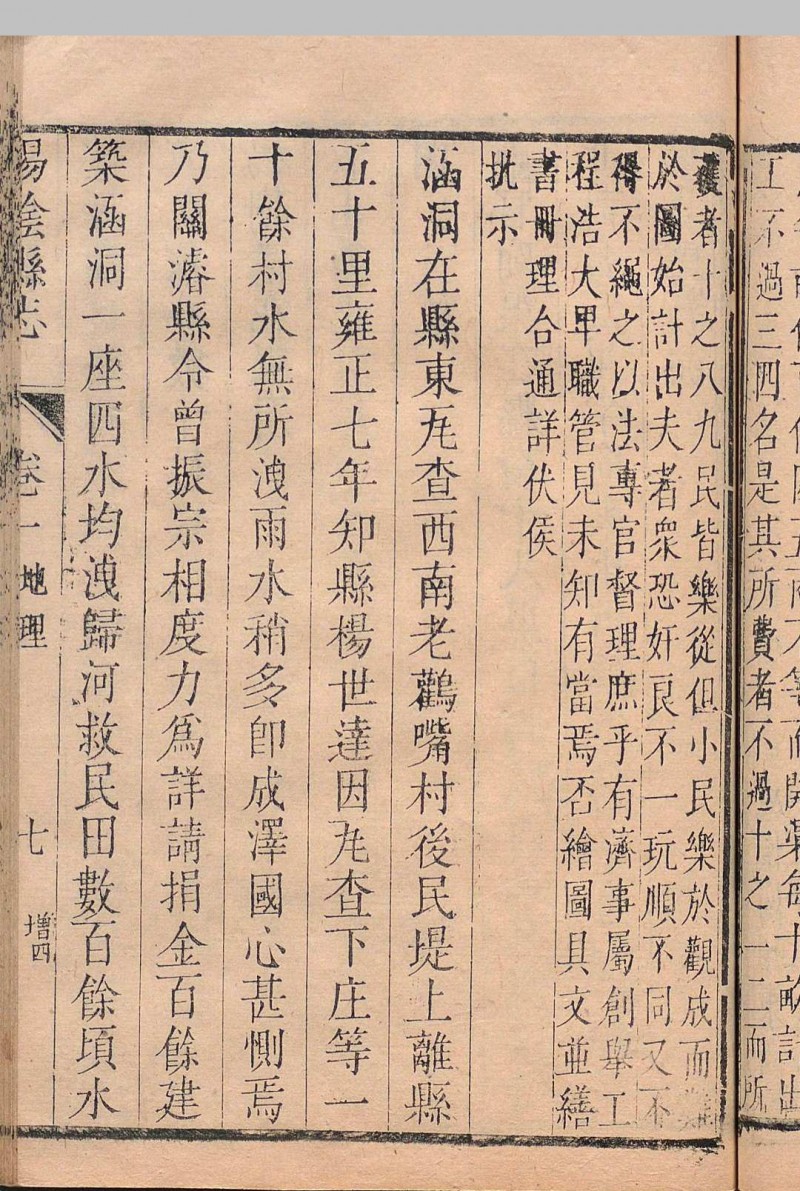 工不過三四名是其所費者不過十之一二而所
穫者十之八九民皆樂從但小民樂於觀成而難
於圖始計出夫者衆恐奸良不一玩順不同又不
得不繩之以法專官督理庶乎有濟事屬創舉工
程浩大卑職管見未知有當焉否繪圖具文並繕
書冊理合通詳伏侯
批示
涵洞在縣東㐳查西南老鸛嘴村後民堤上離縣
五十里雍正七年知縣楊世達因㐳查下庄等一
十餘村水無所洩雨水稍多卽成澤國心甚惻焉
乃關濬縣令曾振宗相度力爲詳請捐金百餘建
築涵洞一座四水均洩歸河救民田數百餘頃水
湯陰縣志 卷一 地理 七 增四